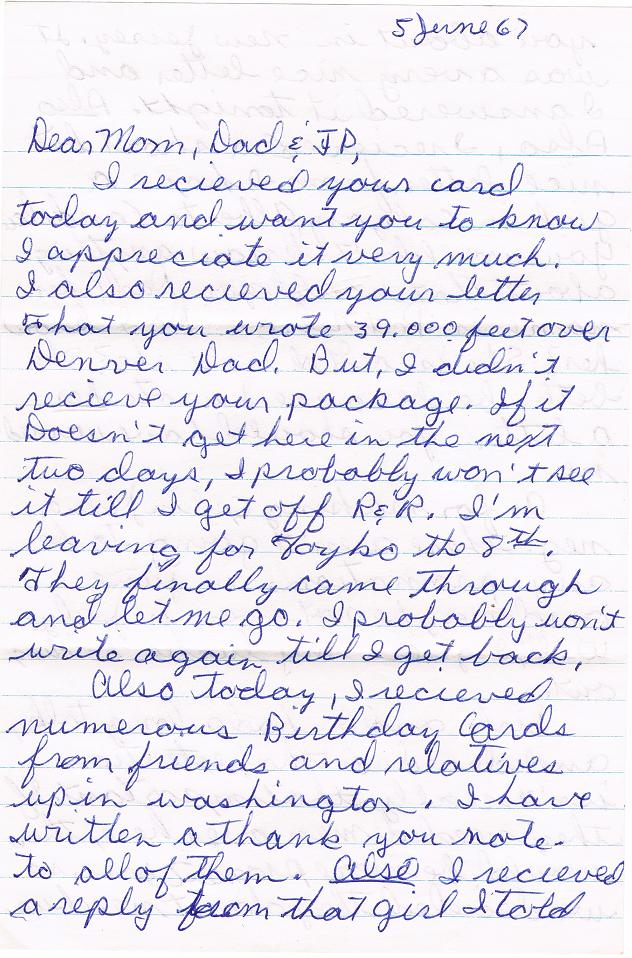 5 June 67
Dear Mom, Dad & JP,
I recieved your card
today and want you to know
I appreciate it very much.
I also recieved your letter
that you wrote 39.000 feet over
Denver Dad. But, I didn't
recieve your package. If it
Doesn't get here in the next
two days, I probably won't see
it till I get off R&R. I'm
leaving for Toyko the 8th.
They finally came through
and let me go. I probably won't
write again till I get back.
Also today, I recieved
numerous Birthday Cards
from friends and relatives
up in washington. I have
written a thank you note
to all of them. Also I recieved
a reply from that girl I told